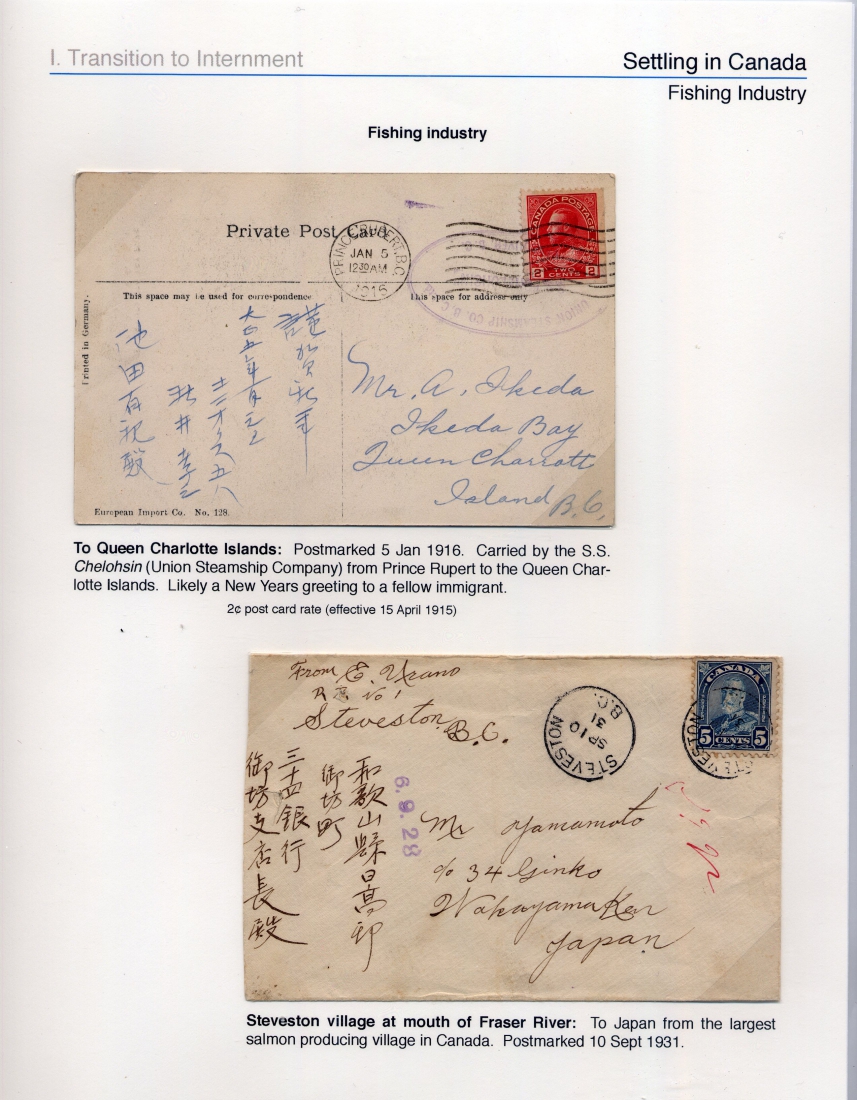 I. Transition to Internment
Settling in Canada
Fishing Industry
Fishing industry
Private Post Card
PRINCE RUPERT, B.C.
JAN 5
12 30 AM
1916
CANADA POSTAGE
2 TWO CENTS 2
UNION STEAMSHIP CO. B.C.
This space may be used for correspondence
This space for address only
Printed in Germany.
謹賀新年
大正五年一月
池田有親殿
Mr. A. Ikeda
Ikeda Bay
Queen Charrott
Island B.C.
European Import Co. No. 128.
To Queen Charlotte Islands: Postmarked 5 Jan 1916. Carried by the S.S.
Chelohsin (Union Steamship Company) from Prince Rupert to the Queen Char-
lotte Islands. Likely a New Years greeting to a fellow immigrant.
2¢ post card rate (effective 15 April 1915)
From E. Urano
R.R. No 1
Steveston
B.C.
STEVESTON
SP 10
31
B.C.
CANADA
5 CENTS 5
STEVESTON
和歌山縣日高郡
御坊町
三十四銀行
御坊支店長殿
6.9.28
Mr Yamamoto
c/o 34 Ginko
Wakayama Ken
Japan
Steveston village at mouth of Fraser River: To Japan from the largest
salmon producing village in Canada. Postmarked 10 Sept 1931.